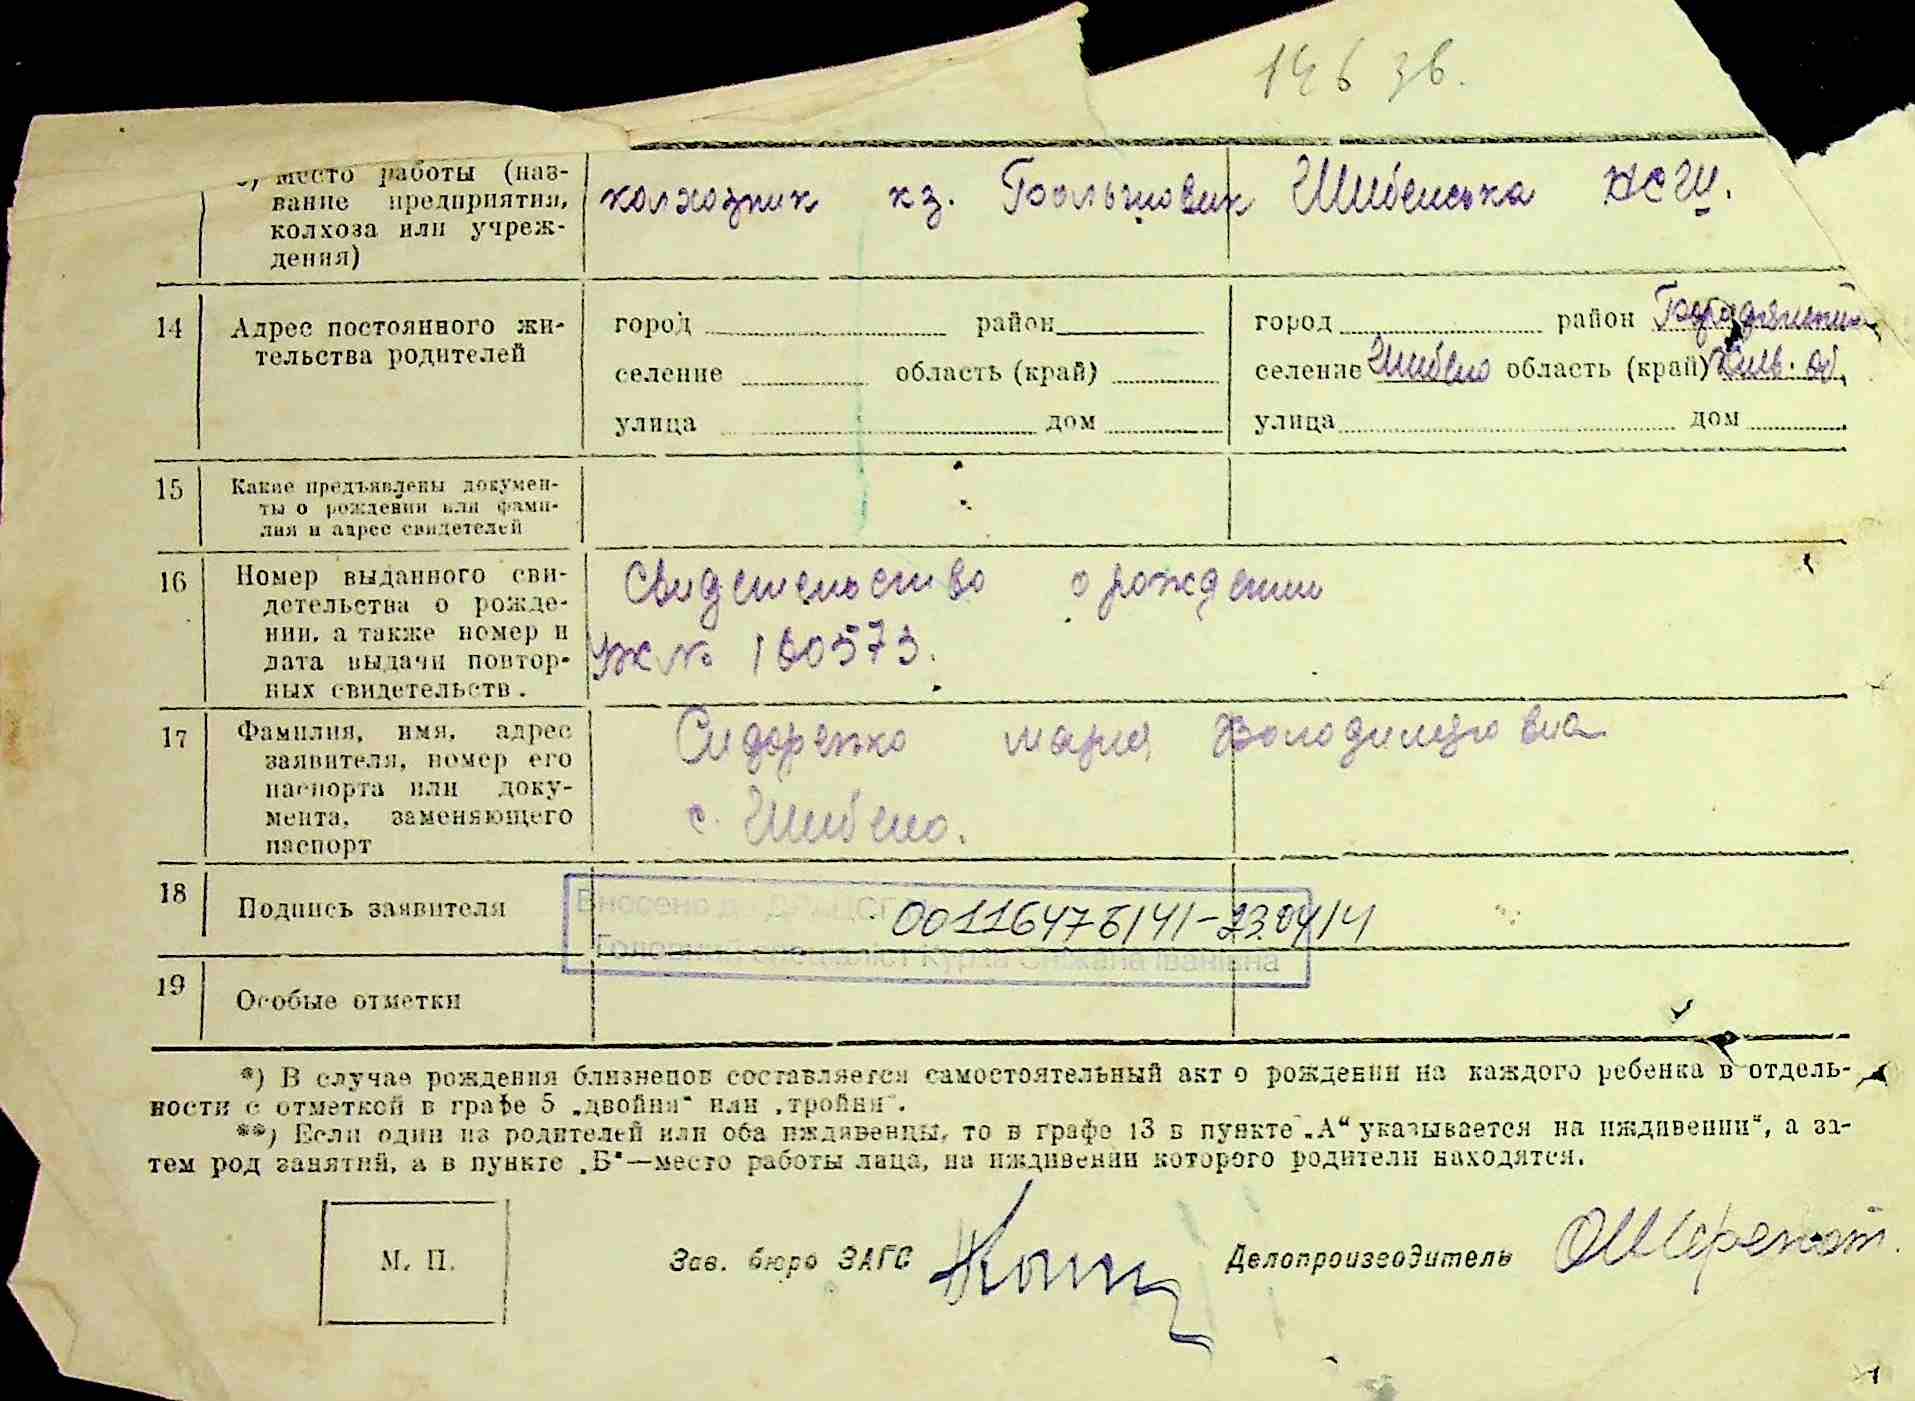 146 зв.
место работы (наз-
вание предприятия,
колхоза или учреж-
дения)
колхозник кз. Большовик Шибенська НСШ.
14 Адрес постоянного жи-
тельства родителей
город район
селение область (край)
улица дом
город район Бородянський
селение Шибено область (край) Київ. об.
улица дом
15 Какие предъявлены докумен-
ты о рождении или фами-
лия и адрес свидетелей
16 Номер выданного сви-
детельства о рожде-
нии, а также номер и
дата выдачи повтор-
ных свидетельств.
Свидетельство о рождении
УЖ № 160573.
17 Фамилия, имя, адрес
заявителя, номер его
паспорта или доку-
мента, заменяющего
паспорт
Сидоренко Мария Володимировна
с. Шибено.
18 Подпись заявителя
Внесено до ДРАЦСГ 00116476141-23.04.14
Головний спеціаліст Сніжана Іванівна
19 Особые отметки
*) В случае рождения близнецов составляется самостоятельный акт о рождении на каждого ребенка в отдель-
ности с отметкой в графе 5 „двойня“ или „тройня“.
**) Если один из родителей или оба иждивенцы, то в графе 13 в пункте „А“ указывается на иждивении“, а за-
тем род занятий, а в пункте „Б“—место работы лица, на иждивении которого родители находятся.
М. П. Зав. бюро ЗАГС Делопроизводитель